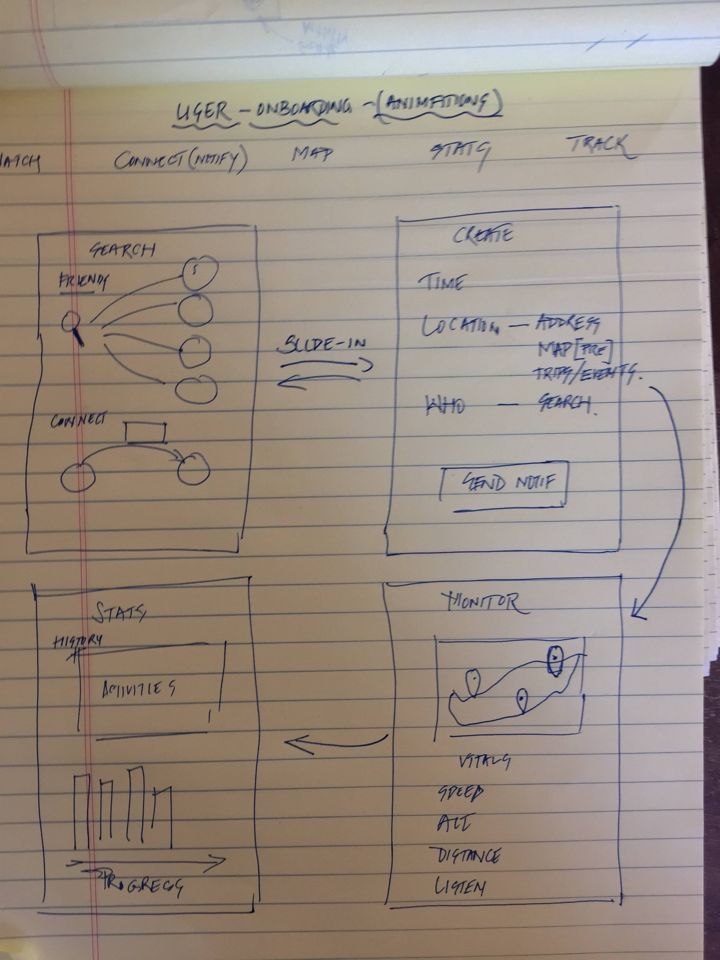 USER - ONBOARDING - (ANIMATIONS)
ATCH CONNECT (NOTIFY) MAP STATS TRACK
SEARCH
FRIENDS
CONNECT
SLIDE-IN
CREATE
TIME
LOCATION — ADDRESS
MAP [PRE]
TRIPS/EVENTS.
WHO — SEARCH.
SEND NOTIF
STATS
HISTORY
ACTIVITIES
PROGRESS
MONITOR
VITALS
SPEED
ALT
DISTANCE
LISTEN